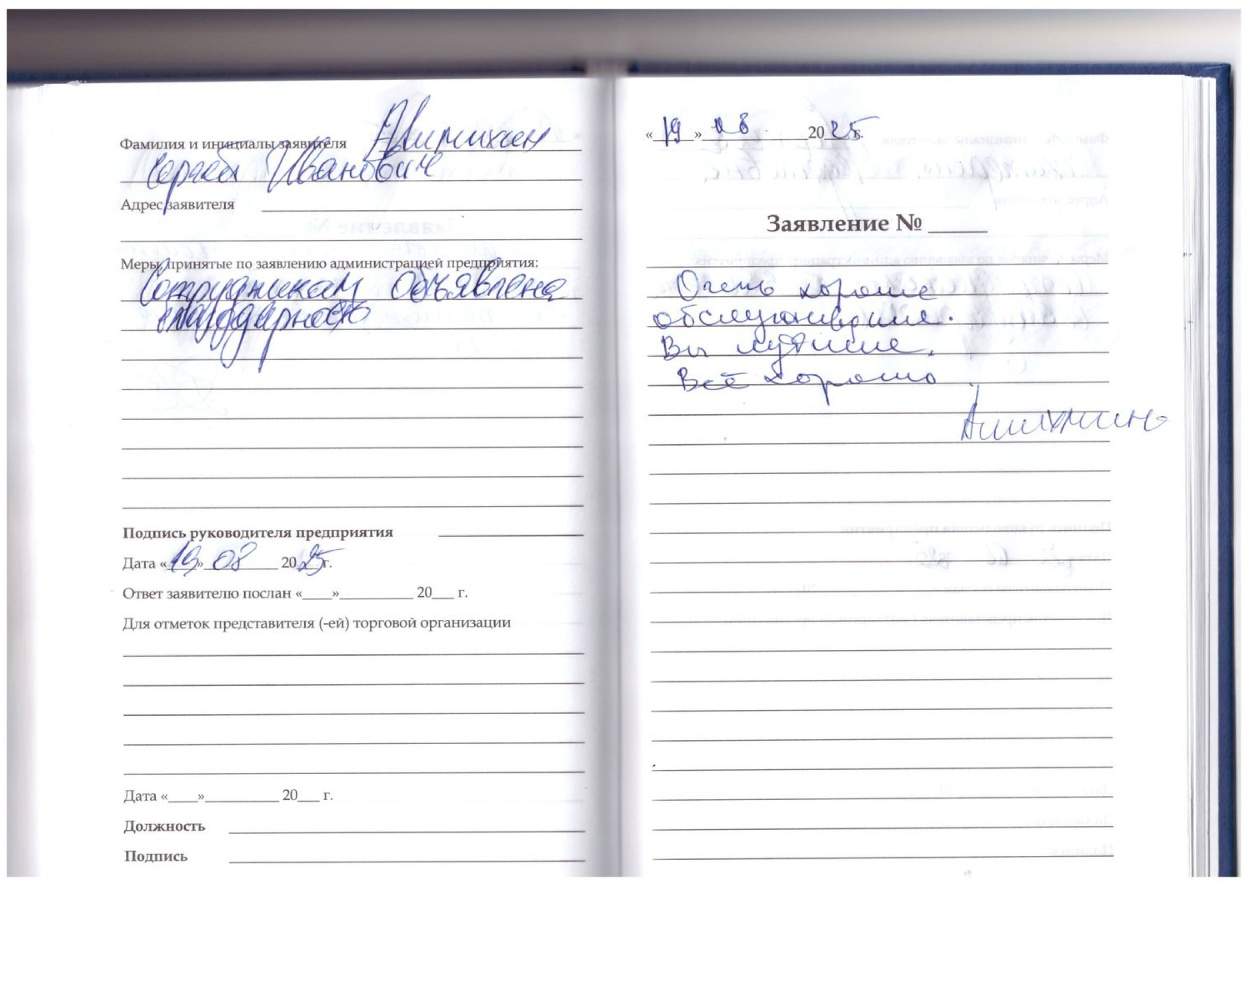 Фамилия и инициалы заявителя
Сергей Иванович
Адрес заявителя
Меры, принятые по заявлению администрацией предприятия:
Сотрудникам объявлена
благодарность
Подпись руководителя предприятия
Дата «19» 08 2025 г.
Ответ заявителю послан «___»_________ 20___ г.
Для отметок представителя (-ей) торговой организации
Дата «___»_________ 20___ г.
Должность
Подпись
«19» 08 2025 г.
Заявление № ____
Очень хорошее
обслуживание.
Вы лучшие.
Всё хорошо.